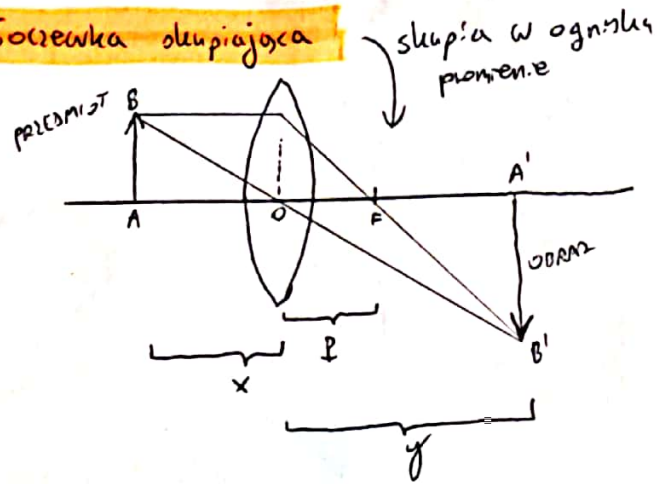 Soczewka skupiająca
skupia w ognisku
promienie
PRZEDMIOT
B
A
O
F
A'
OBRAZ
B'
f
x
y